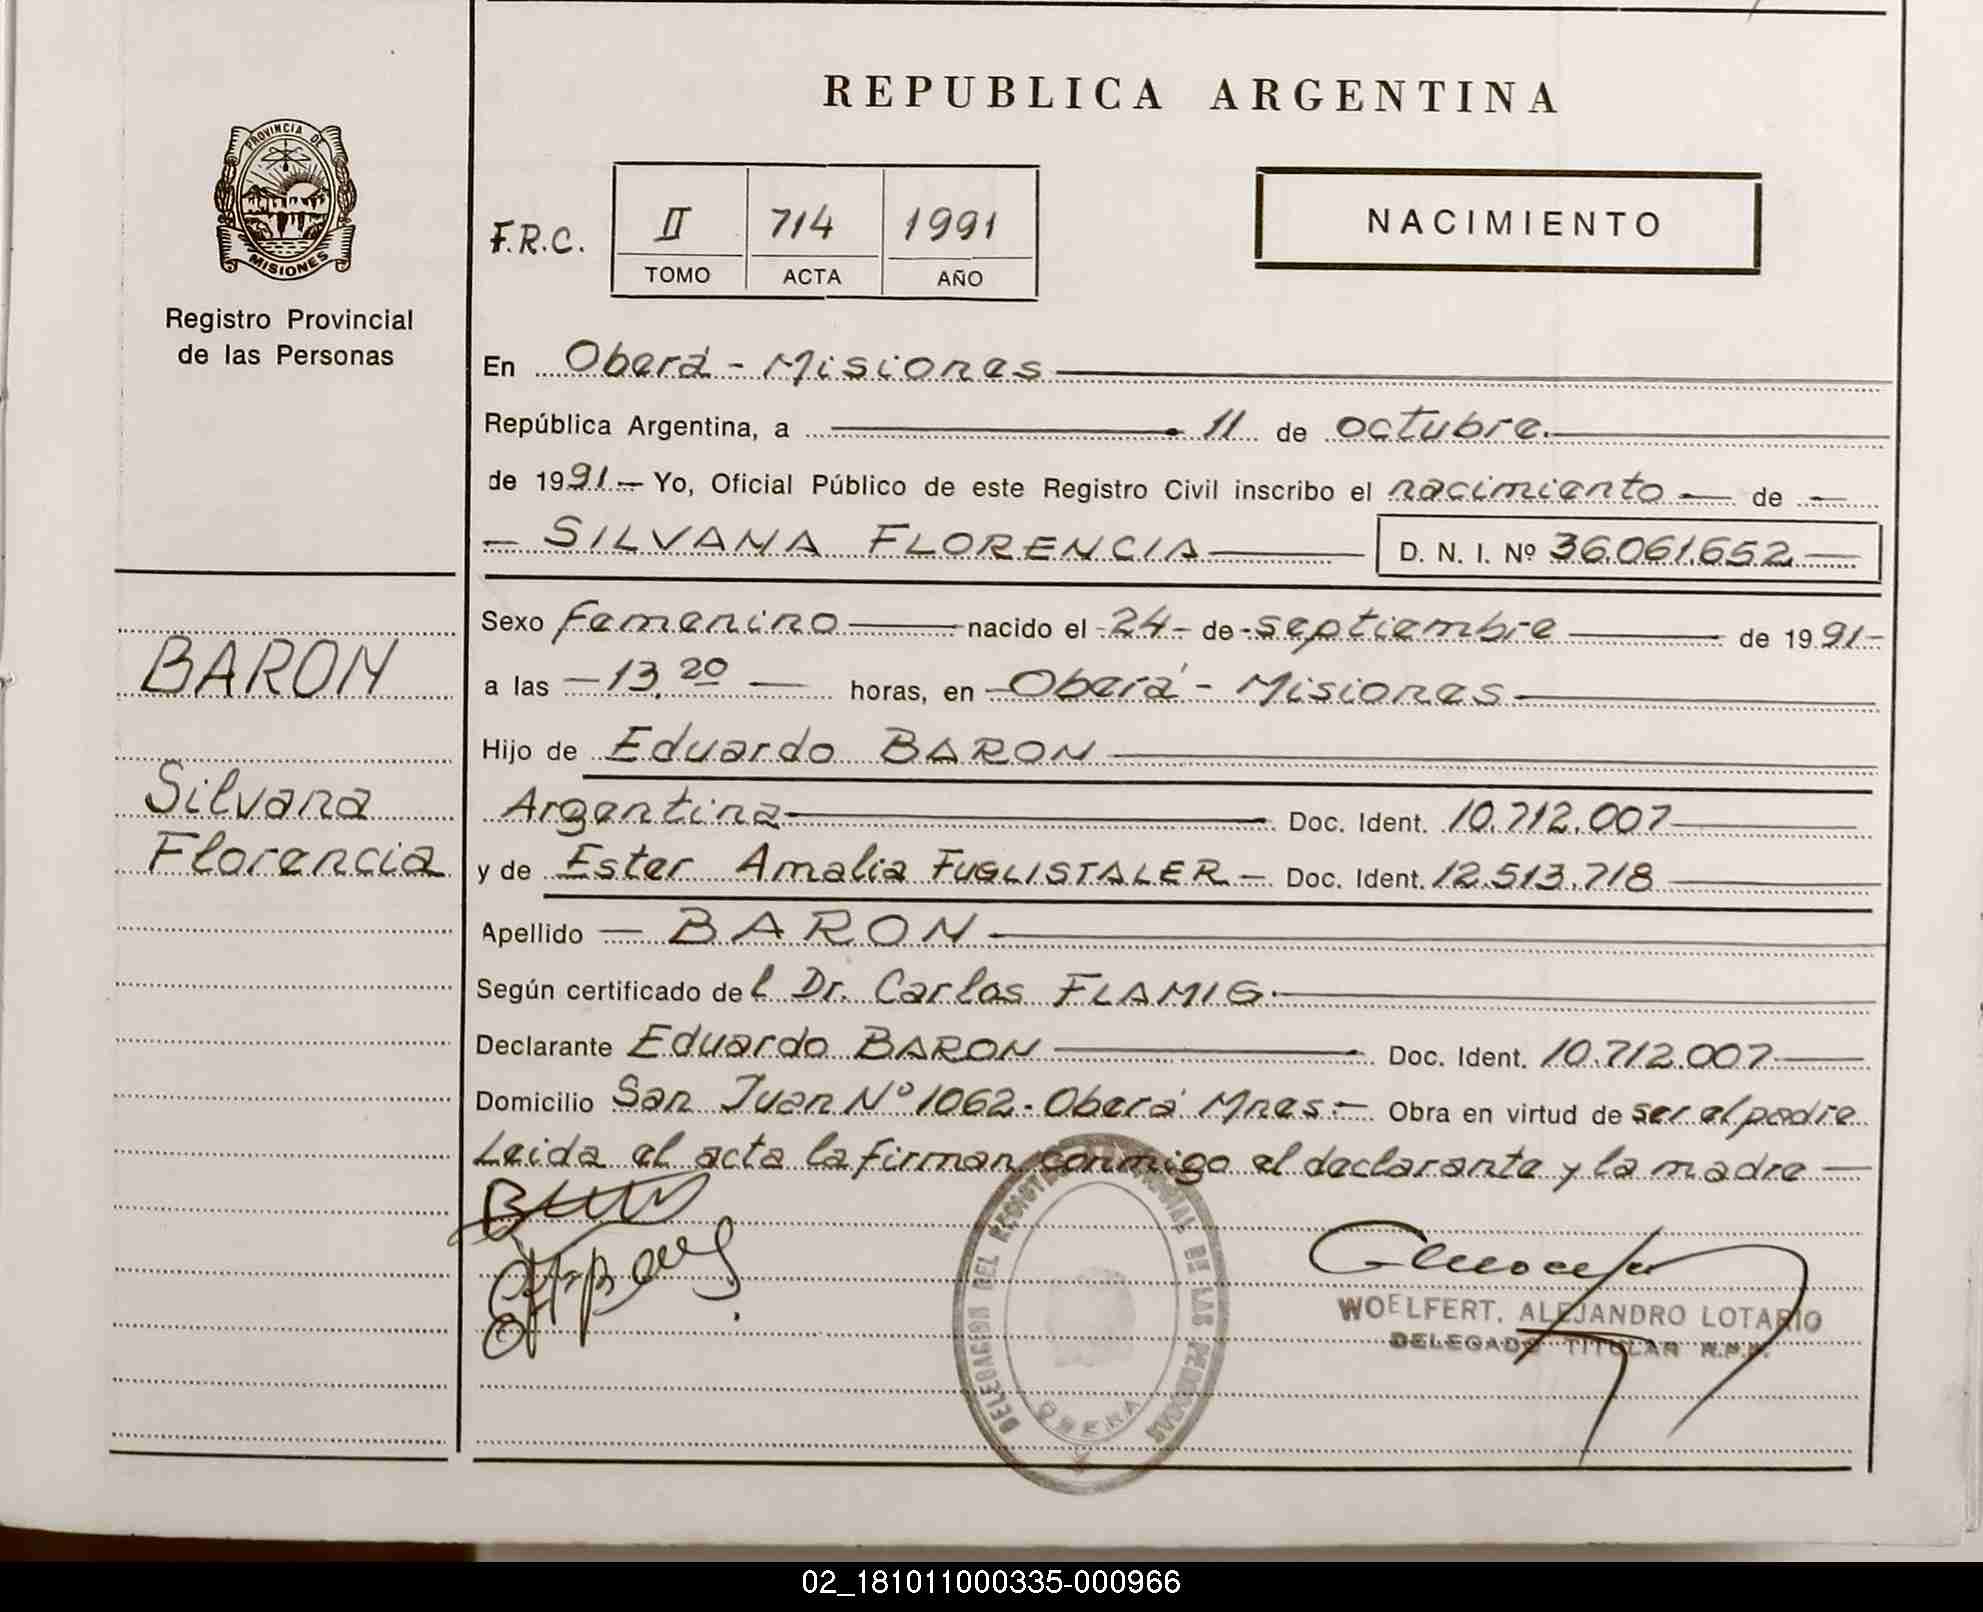 REPUBLICA ARGENTINA
PROVINCIA DE
MISIONES
Registro Provincial
de las Personas
F.R.C. II 714 1991
TOMO ACTA AÑO
NACIMIENTO
En Oberá - Misiones
República Argentina, a 11 de octubre.
de 1991.- Yo, Oficial Público de este Registro Civil inscribo el nacimiento - de -
- SILVANA FLORENCIA D. N. I. Nº 36.061.652
Sexo femenino nacido el -24- de -septiembre de 1991-
a las -13,20 - horas, en - Oberá - Misiones
Hijo de Eduardo BARON
Argentina Doc. Ident. 10.712.007
y de Ester Amalia FUGLISTALER - Doc. Ident. 12.513.718
Apellido - BARON
Según certificado del Dr. Carlos FLAMIG.
Declarante Eduardo BARON Doc. Ident. 10.712.007
Domicilio San Juan Nº 1062 - Oberá Mnes.- Obra en virtud de ser el padre
Leida el acta la firman conmigo el declarante y la madre -
BARON
Silvana
Florencia
DELEGACION DEL REGISTRO PROVINCIAL DE LAS PERSONAS
OBERA
WOELFERT, ALEJANDRO LOTARIO
DELEGADO TITULAR R.P.P.
02_181011000335-000966